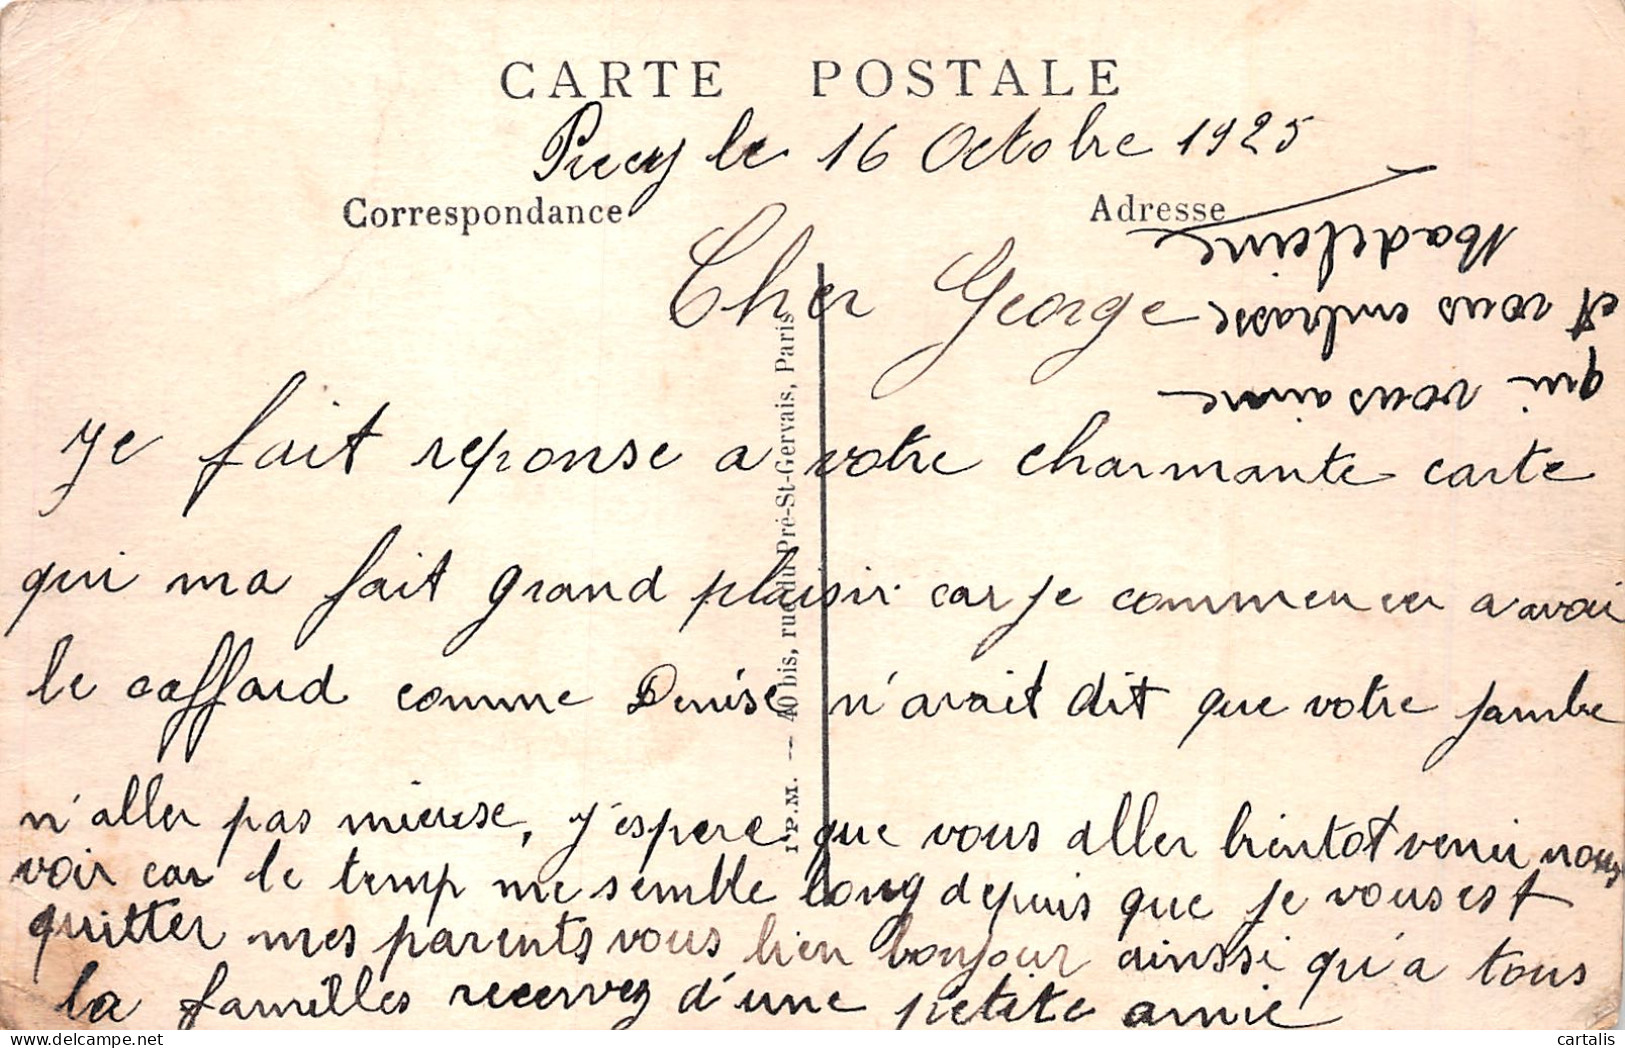 CARTE POSTALE
Precy le 16 Octobre 1925
Correspondance
Adresse
Cher George
Je fait reponse a votre charmante carte
qui ma fait grand plaisir car je commencer a avoir
le caffard comme Denise n'avait dit que votre jambe
n'aller pas mieuse, J'espere que vous aller bientot venir nous
voir car le temp me semble long depuis que je vous est
quitter mes parents vous bien bonjour ainssi qu'a tous
la familles recervez d'une petite amie
qui vous aime
et vous embrasse
Madeleine
I P. M. — 40 bis, rue du Pré-St-Gervais, Paris
cartalis
delcampe.net